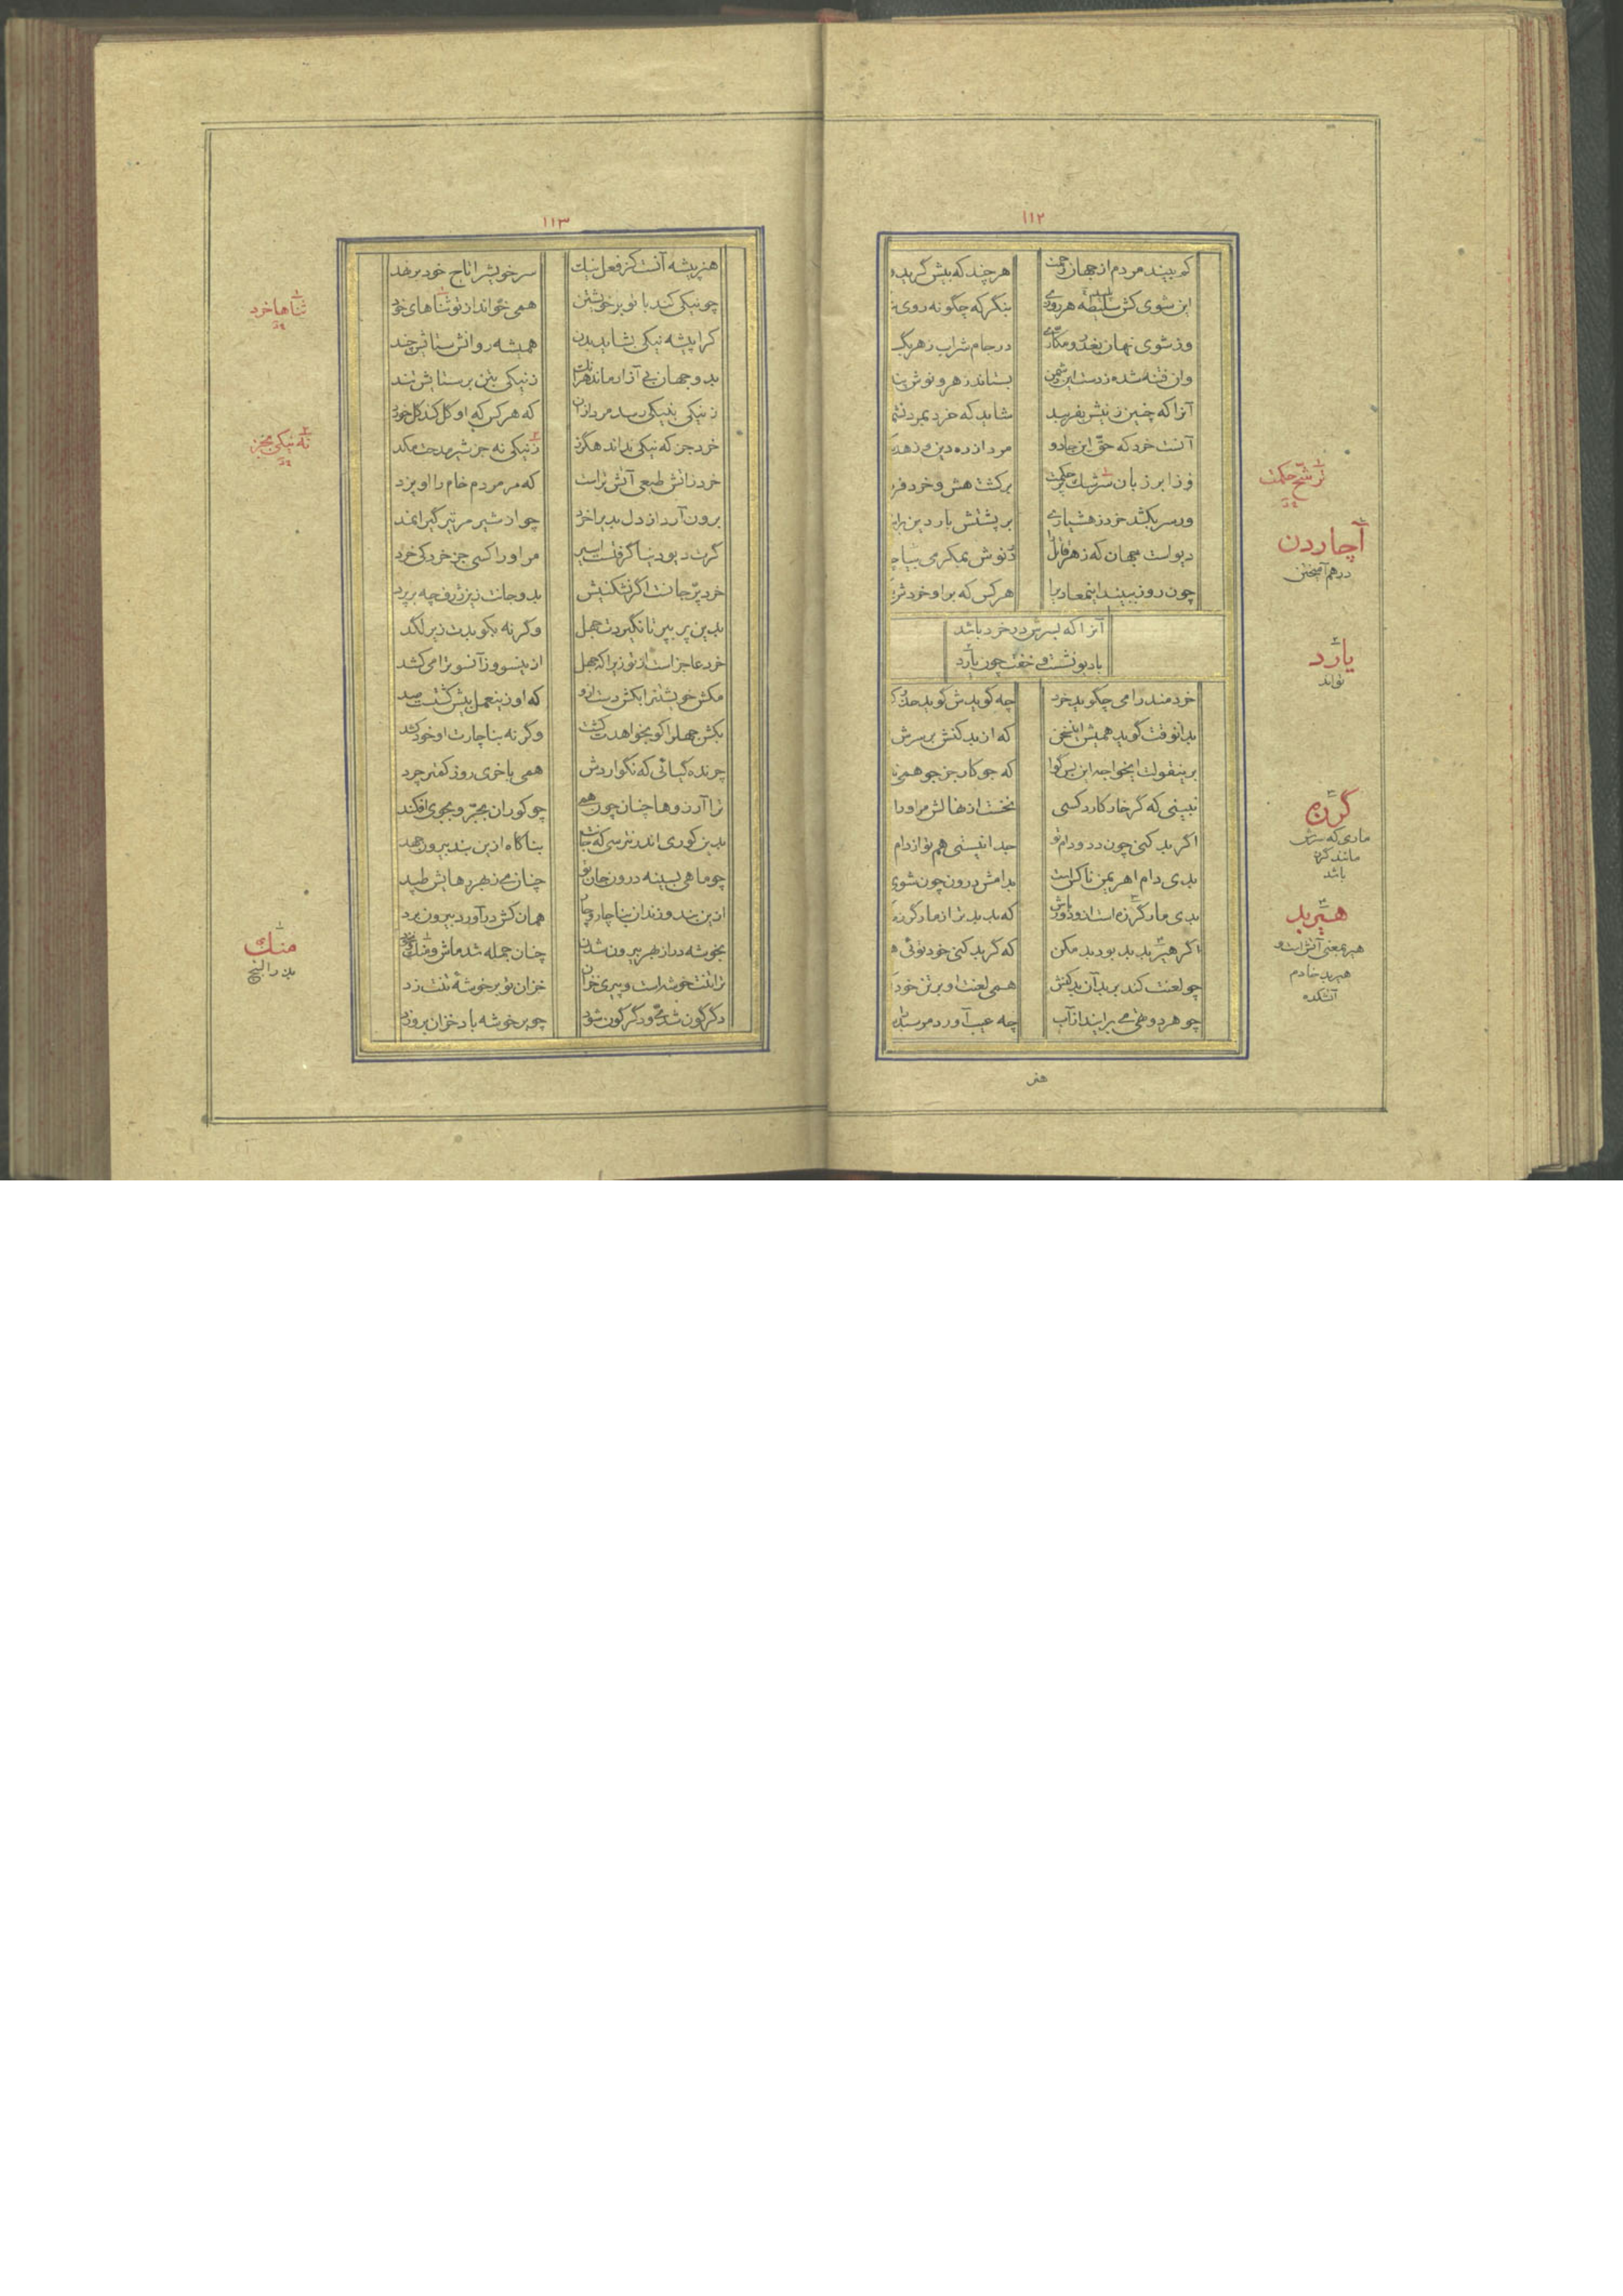 ۱۱۲
کم بیند مردم از جهان رحمت هر چند که بیش گرید و
این شوی کش سلیطه هر روزی بنگر که چگونه روی
وز شوی نهان بغدر و مکاری در جام شراب زهر
وان فتنه شده ز دست این دشمن بستاند زهر و نوش
آنرا که چنین زنیش بفریبد شاید که خرد بمرد
آنست خرد که حق این جادو مرد از ره دین و زهد
وز ابر زبان سرشک حکمت بر کشت هش و خرد
ور سر بکشد خرد ز هشیاری بر پشتش بار دین
دیوست جهان که زهر قاتل را در نوش بمکر می
چون روز ببیند این معادی را هر کس که بر او خرد
آنرا که بسرش در خرد باشد
با دیو نشست و خفت چون یارد
خردمند را می چگوید خرد چه گویدش گوید حذر
بدانوقت گوید همیش این سخن که از بد کنش بر سرش
برینقولت ایخواجه این بس گوا که جو کار جز جو همی
نبینی که گر خار کارد کسی نخست از نهالش مر او را
اگر بد کنی چون دد و دام تو جدا نیستی هم تو از دام
بدی دام اهریمن ناکس است بدامش درون چون شوی
بدی مار گرزه است ازو دور باش که بد بدتر از مار گرزه
اگر هیربد بد بود بد مکن که گر بد کنی خود توئی
چو لعنت کند بر بدان بد کنش همی لعنت او بر تن خود
چو هر دو تهی می برایند از آب چه عیب آورد مر سبد را
هنر
ترشح حکمت
آچاردن
درهم آمیختن
یارد
تواند
گرزه
ماری که سرش
مانند گرز
باشد
هیربد
هیر بمعنی آتش است و
هیربد خادم
آتشکده
۱۱۳
هنر پیشه آنست کز فعل نیک سر خویش را تاج خود بر نهد
چو نیکی کند با تو بر خویشتن همی خواند از تو ثناهای خود
کرا پیشه نیکی شاید بدن همیشه روانش ستایش چند
بدو جهان بی آزار ماند ز نیکی بتن بر ستایش تند
ز نیکی بنیکی رسد مرد از آن که هر کس که او گل کند گل خورد
خرد جز که نیکی نداند هگرز ز نیکی نه جز شیر مدحت مکد
خرد زانش طبعی آتش تر است که مر مردم خام را او پزد
برون آرد از دل بدیرا خرد چو از شیر مر تیر گیرا نمد
گرت دیو دنیا گرفت اسیر مر او را کسی جز خرد کی خرد
خرد پر جانت اگر نشکنیش بدو جانت زین ژرف چه بر پرد
بدین پر بپر تا نگیردت جهل وگرنه بکوبدت زیر لگد
خرد عاجز است از تو زیرا که جهل از ینسو و زآنسو ترا می کشد
مکش خویشتن را بکش دست ازو که او زینعمل بیش گشت صد
بکش جهل را کو بخواهدت کشت وگرنه بناچارت او خود کشد
چرنده گیائی که نگواردش همی با خری روز کفتر چرد
ترا آرزوها چنان چون همی چو کوران بجر و بجوی افکند
بدین کوری اندر نترسی که جانت بناگاه ازین بند بیرون جهد
چو ماهی بسینه درون جان تو چنان می ز بهر رهایش طپد
ازین بند و زندان بناچار و چار همان کش درآورد بیرون برد
بخوشه در از بهر بیرون شدن چنان جمله شد ماش و منگ و نخود
ترا تنت خوشه است و پیری خزان خزان تو بر خوشه تنت زد
دگرگون شدی و دگرگون شود چو بر خوشه باد خزان بر وزد
ثناها خرد
نه نیکی بجز
منگ